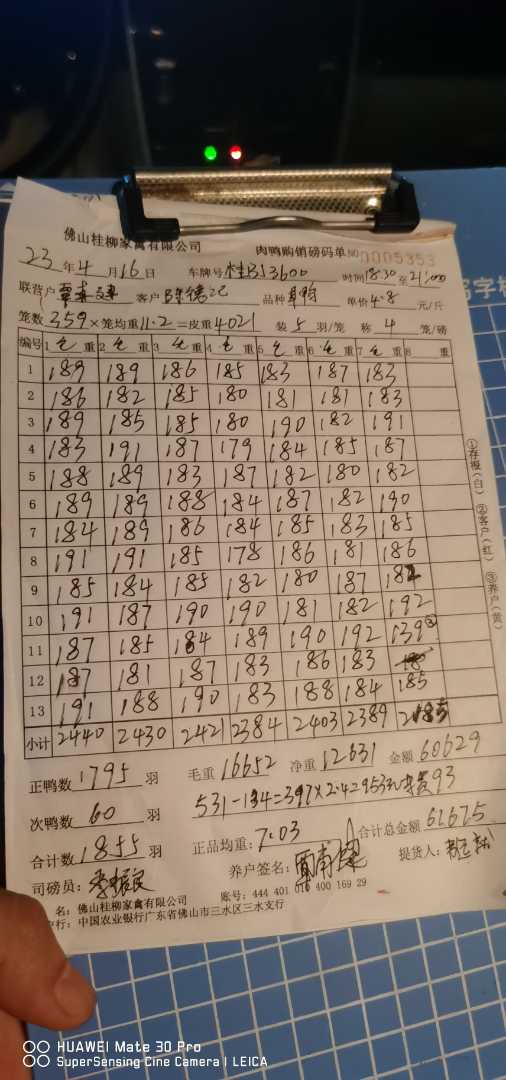 佛山桂柳家禽有限公司 肉鸭购销磅码单 NO 0005353
23年4月16日 车牌号 桂BJ3600 时间18:30至21:00
联营户 客户 品种 单价4.8元/斤
笼数359×笼均重11.2=皮重4021 装5羽/笼 称4笼/磅
编号 1 毛重 2 毛重 3 毛重 4 毛重 5 毛重 6 毛重 7 毛重 8 重
1 189 189 186 185 183 187 183
2 186 182 185 180 181 181 183
3 189 185 185 180 190 182 191
4 183 191 187 179 184 185 187
5 188 189 183 187 182 180 182
6 189 189 188 184 187 182 190
7 184 189 186 184 185 183 185
8 191 191 185 178 186 181 186
9 185 184 185 182 180 187 182
10 191 187 190 190 181 182 192
11 187 185 184 189 190 192 139③
12 187 181 187 183 186 183
13 191 188 190 183 188 184 185
小计 2440 2430 2421 2384 2403 2389 2185
正鸭数1795羽 毛重16652 净重12631 金额60629
531-134=397×2.4=953元 93
次鸭数60羽
合计数1855羽 正品均重:7.03 合计总金额61675
司磅员:李振良 养户签名: 提货人:
名:佛山桂柳家禽有限公司 账号:444 401 010 400 169 29
行:中国农业银行广东省佛山市三水区三水支行
①存根(白) ②客户(红) ③养户(黄)
写字板
HUAWEI Mate 30 Pro
SuperSensing Cine Camera | LEICA